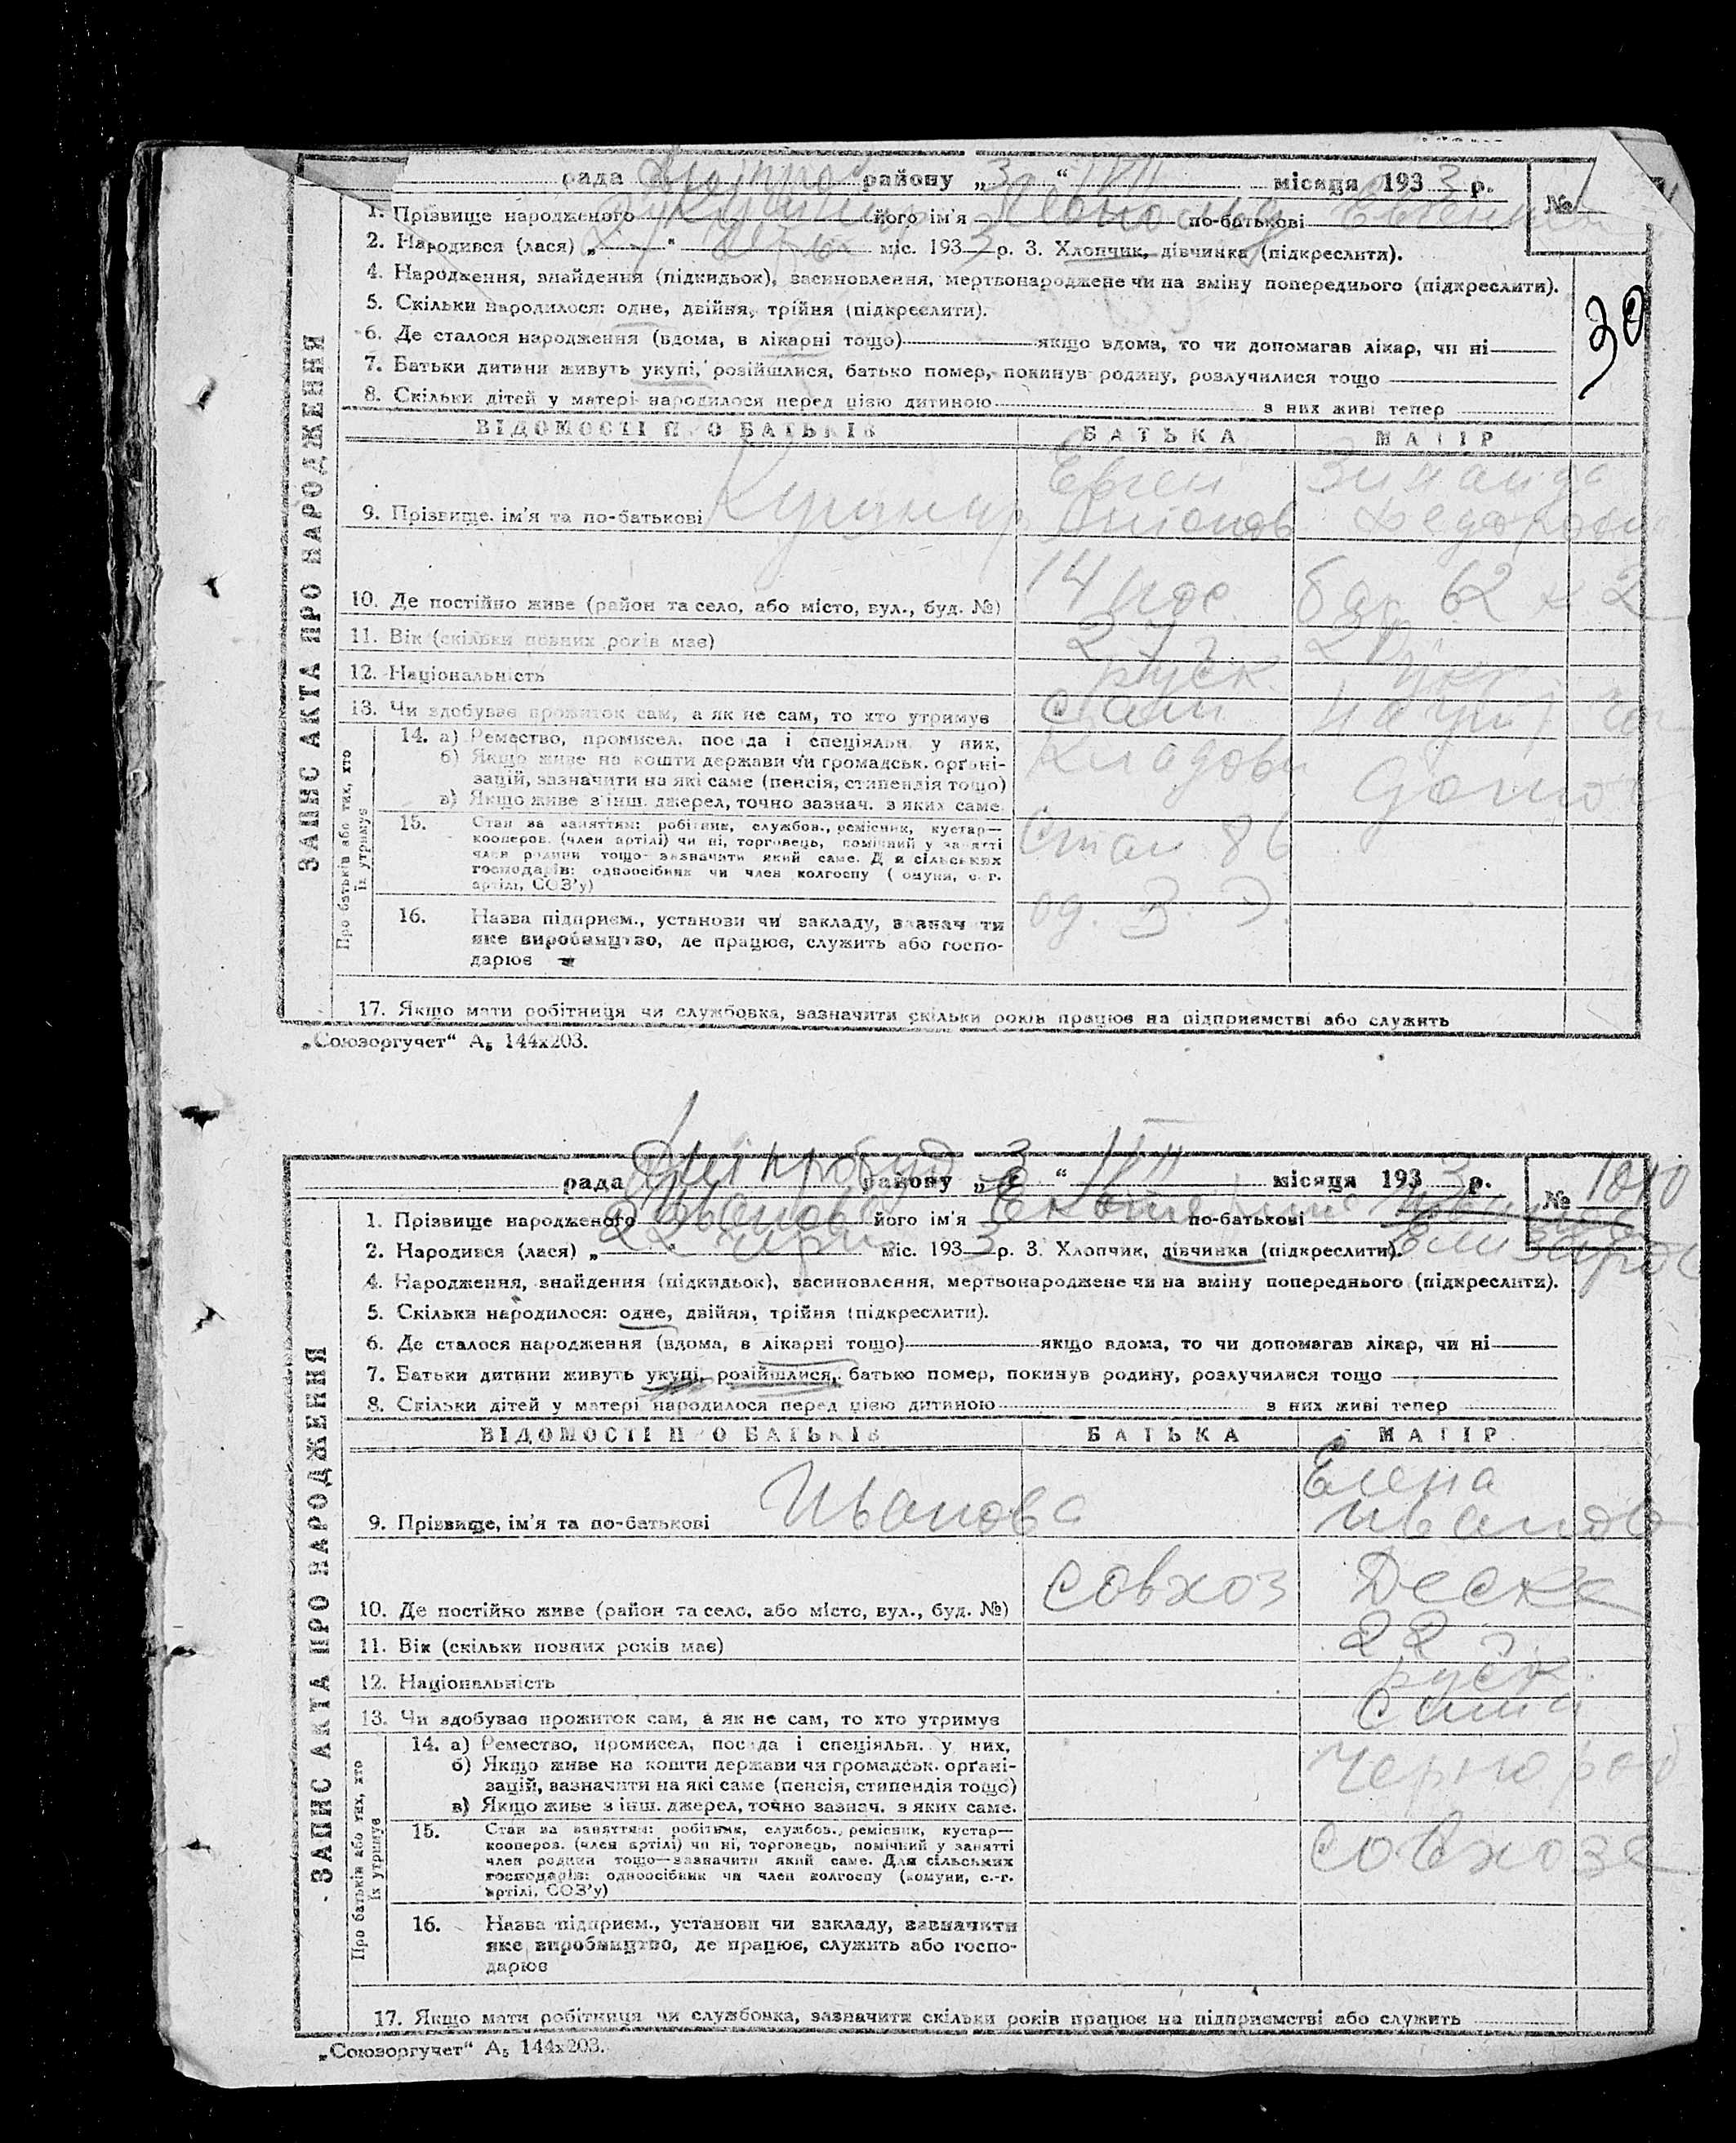 рада Дніпро району „3“ VIII місяця 193 3 р.
№
1. Прізвище народженого його ім'я по-батькові Евгении
2. Народився (лася) „ “ міс. 193 3 р. 3. Хлопчик, дівчинка (підкреслити).
4. Народження, знайдення (підкидьок), засиновлення, мертвонароджене чи на зміну попереднього (підкреслити).
5. Скільки народилося: одне, двійня, трійня (підкреслити).
30
6. Де сталося народження (вдома, в лікарні тощо) якщо вдома, то чи допомагав лікар, чи ні
7. Батьки дитини живуть укупі, розійшлися, батько помер, покинув родину, розлучилися тощо
8. Скільки дітей у матері народилося перед цією дитиною з них живі тепер
ЗАПИС АКТА ПРО НАРОДЖЕННЯ
ВІДОМОСТІ ПРО БАТЬКІВ БАТЬКА МАТІР
Евген Зинаида
9. Прізвище, ім'я та по-батькові Антонов Федоровна
14 пос бар 62 к 2
10. Де постійно живе (район та село, або місто, вул., буд. №)
11. Вік (скільки повних років має) 27
12. Національність руск. укр
13. Чи здобуває прожиток сам, а як не сам, то хто утримує сам на утр
Про батьків або тих, хто їх утримує
14. а) Ремество, промисел, посада і спеціяльн. у них,
б) Якщо живе на кошти держави чи громадськ. орґані-
зацій, зазначити на які саме (пенсія, стипендія тощо)
в) Якщо живе з інш. джерел, точно зазнач. з яких саме.
Кладовщ домох
15. Стан за заняттям: робітник, службов., ремісник, кустар—
кооперов. (член артілі) чи ні, торговець, помічний у занятті
член родини тощо—зазначити який саме. Для сільських
господарів: одноосібник чи член колгоспу (комуни, с.-г.
артілі, СОЗ'у)
Стал 86
од. 3
16. Назва підприєм., установи чи закладу, зазначити
яке виробництво, де працює, служить або госпо-
дарює
17. Якщо мати робітниця чи службовка, зазначити скільки років працює на підприємстві або служить
„Союзоргучет“ А₅ 144х203.
рада Дніпробуд району „3“ VIII місяця 193 3 р.
№ 1010
1. Прізвище народженого Иванова його ім'я Екатерина по-батькові
2. Народився (лася) „22“ міс. 193 3 р. 3. Хлопчик, дівчинка (підкреслити).
4. Народження, знайдення (підкидьок), засиновлення, мертвонароджене чи на зміну попереднього (підкреслити).
5. Скільки народилося: одне, двійня, трійня (підкреслити).
6. Де сталося народження (вдома, в лікарні тощо) якщо вдома, то чи допомагав лікар, чи ні
7. Батьки дитини живуть укупі, розійшлися, батько помер, покинув родину, розлучилися тощо
8. Скільки дітей у матері народилося перед цією дитиною з них живі тепер
ЗАПИС АКТА ПРО НАРОДЖЕННЯ
ВІДОМОСТІ ПРО БАТЬКІВ БАТЬКА МАТІР
Елена
9. Прізвище, ім'я та по-батькові Иванова Иванов
10. Де постійно живе (район та село, або місто, вул., буд. №) совхоз
11. Вік (скільки повних років має) 22
12. Національність руск.
13. Чи здобуває прожиток сам, а як не сам, то хто утримує сама
Про батьків або тих, хто їх утримує
14. а) Ремество, промисел, посада і спеціяльн. у них,
б) Якщо живе на кошти держави чи громадськ. орґані-
зацій, зазначити на які саме (пенсія, стипендія тощо)
в) Якщо живе з інш. джерел, точно зазнач. з яких саме.
Чернораб
15. Стан за заняттям: робітник, службов., ремісник, кустар—
кооперов. (член артілі) чи ні, торговець, помічний у занятті
член родини тощо—зазначити який саме. Для сільських
господарів: одноосібник чи член колгоспу (комуни, с.-г.
артілі, СОЗ'у)
совхозе
16. Назва підприєм., установи чи закладу, зазначити
яке виробництво, де працює, служить або госпо-
дарює
17. Якщо мати робітниця чи службовка, зазначити скільки років працює на підприємстві або служить
„Союзоргучет“ А₅ 144х203.